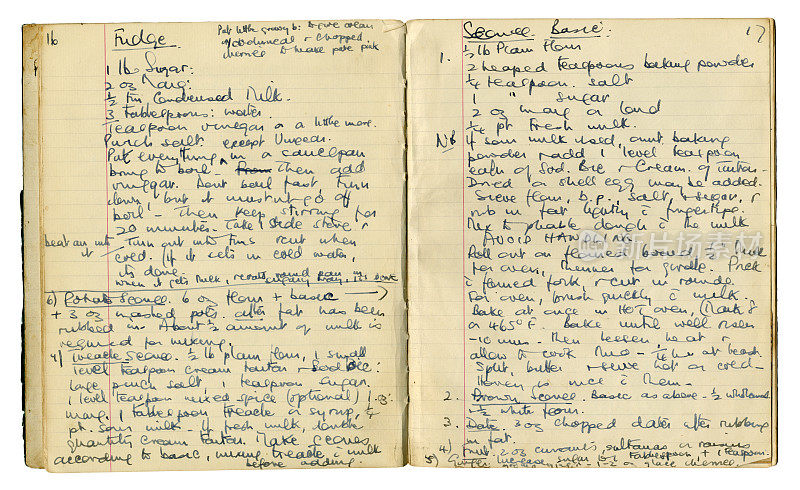 16
Fudge
Put little gravy b: browning
& chopped
cherries to make pale pink
1 lb Sugar:
2 oz Marg:
½ Tin Condensed Milk.
3 Tablespoons: water.
Teaspoon vinegar or a little more.
Pinch salt. except Vinegar.
Put everything in a saucepan
bring to boil - Then add
vinegar. Dont boil fast Turn
down, but it must not go off
boil - Then keep stirring for
20 minutes. Take side stove &
beat an inch Turn out into tins & cut when
cold. If it sets in cold water,
its done.
when it gets thick,
6) Potato Scones. 6 oz flour + basic
+ 3 oz mashed pots: after fat has been
rubbed in. About ½ amount of milk is
required for mixing.
7) Treacle Scones. ½ lb plain flour, 1 small
level teaspoon cream tartar & Sod Bic:
large pinch salt 1 teaspoon Sugar.
1 level teaspoon mixed spice (optional) 1 oz
marg. 1 tablespoon treacle or syrup, ¼
pt. sour milk - if fresh milk, double
quantity cream tartar. Make scones
according to basic, mixing treacle c milk
before adding.
17
Scones Basic:
1. ½ lb Plain flour
2 heaped teaspoons baking powder
¼ teaspoon salt
1 " sugar
2 oz marg or lard
¼ pt Fresh milk.
NB If sour milk used, omit baking
powder & add 1 level teaspoon
each of Sod. Bic & Cream. of tartar.
Dried or shell egg may be added.
Sieve flour, b.p., salt, & sugar, &
rub in fat lightly c fingertips.
Mix to pliable dough c the milk
AVOID HANDLING
Roll out on floured board ½" thick
for oven, thinner for girdle. Prick
c floured fork, & cut in rounds
For oven, brush quickly c milk.
Bake at once in HOT oven, (Mark 8
or 465°F. Bake until well risen
-10 mins. then lessen heat &
allow to cook thro -
Split, butter & serve hot or cold-
Honey is nice c them-
2. Brown Scones. Basic as above - ½ wholemeal
-½ white flour.
3. Date. 3 oz chopped dates after rubbing
in fat.
4) Fruit. 2 oz currants, sultanas or raisins
5) Ginger. Increase sugar to 1 Tablespoon + 1 teaspoon.